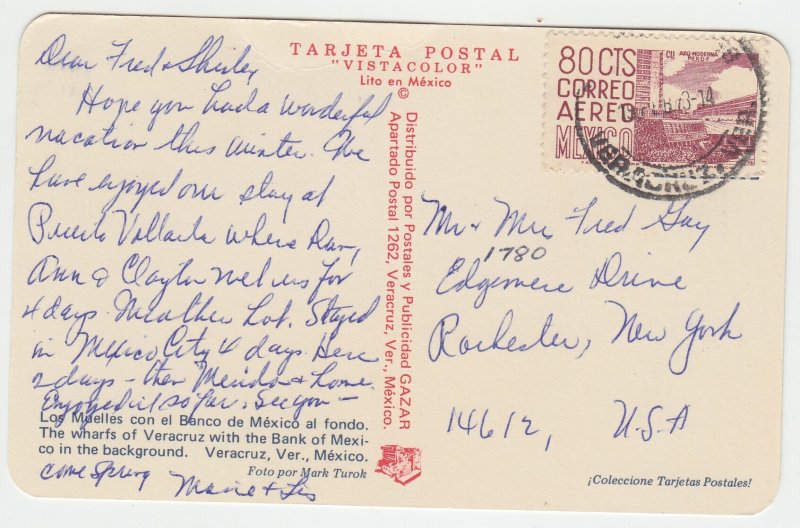 Dear Fred & Shirley
Hope you had a wonderful
vacation this winter. We
have enjoyed our stay at
Puerto Vallarta where Dan,
Ann & Clayton met us for
4 days. Weather hot. Stayed
in Mexico City 4 days. Here
2 days - then Merida & home.
Enjoyed it so far. See you -
come Spring
Marie & Les
Los Muelles con el Banco de México al fondo.
The wharfs of Veracruz with the Bank of Mexi-
co in the background. Veracruz, Ver., México.
Foto por Mark Turok
TARJETA POSTAL
"VISTACOLOR"
Lito en México
©
Distribuido por Postales y Publicidad GAZAR
Apartado Postal 1262, Veracruz, Ver., México.
80 CTS
CORREO
AEREO
MEXICO
CU ARQ-MODERNA
MEXICO D.F.
73-14
VERACRUZ, VER.
Mr & Mrs Fred Gay
1780
Edgemere Drive
Rochester, New York
14612, U.S.A
¡Coleccione Tarjetas Postales!